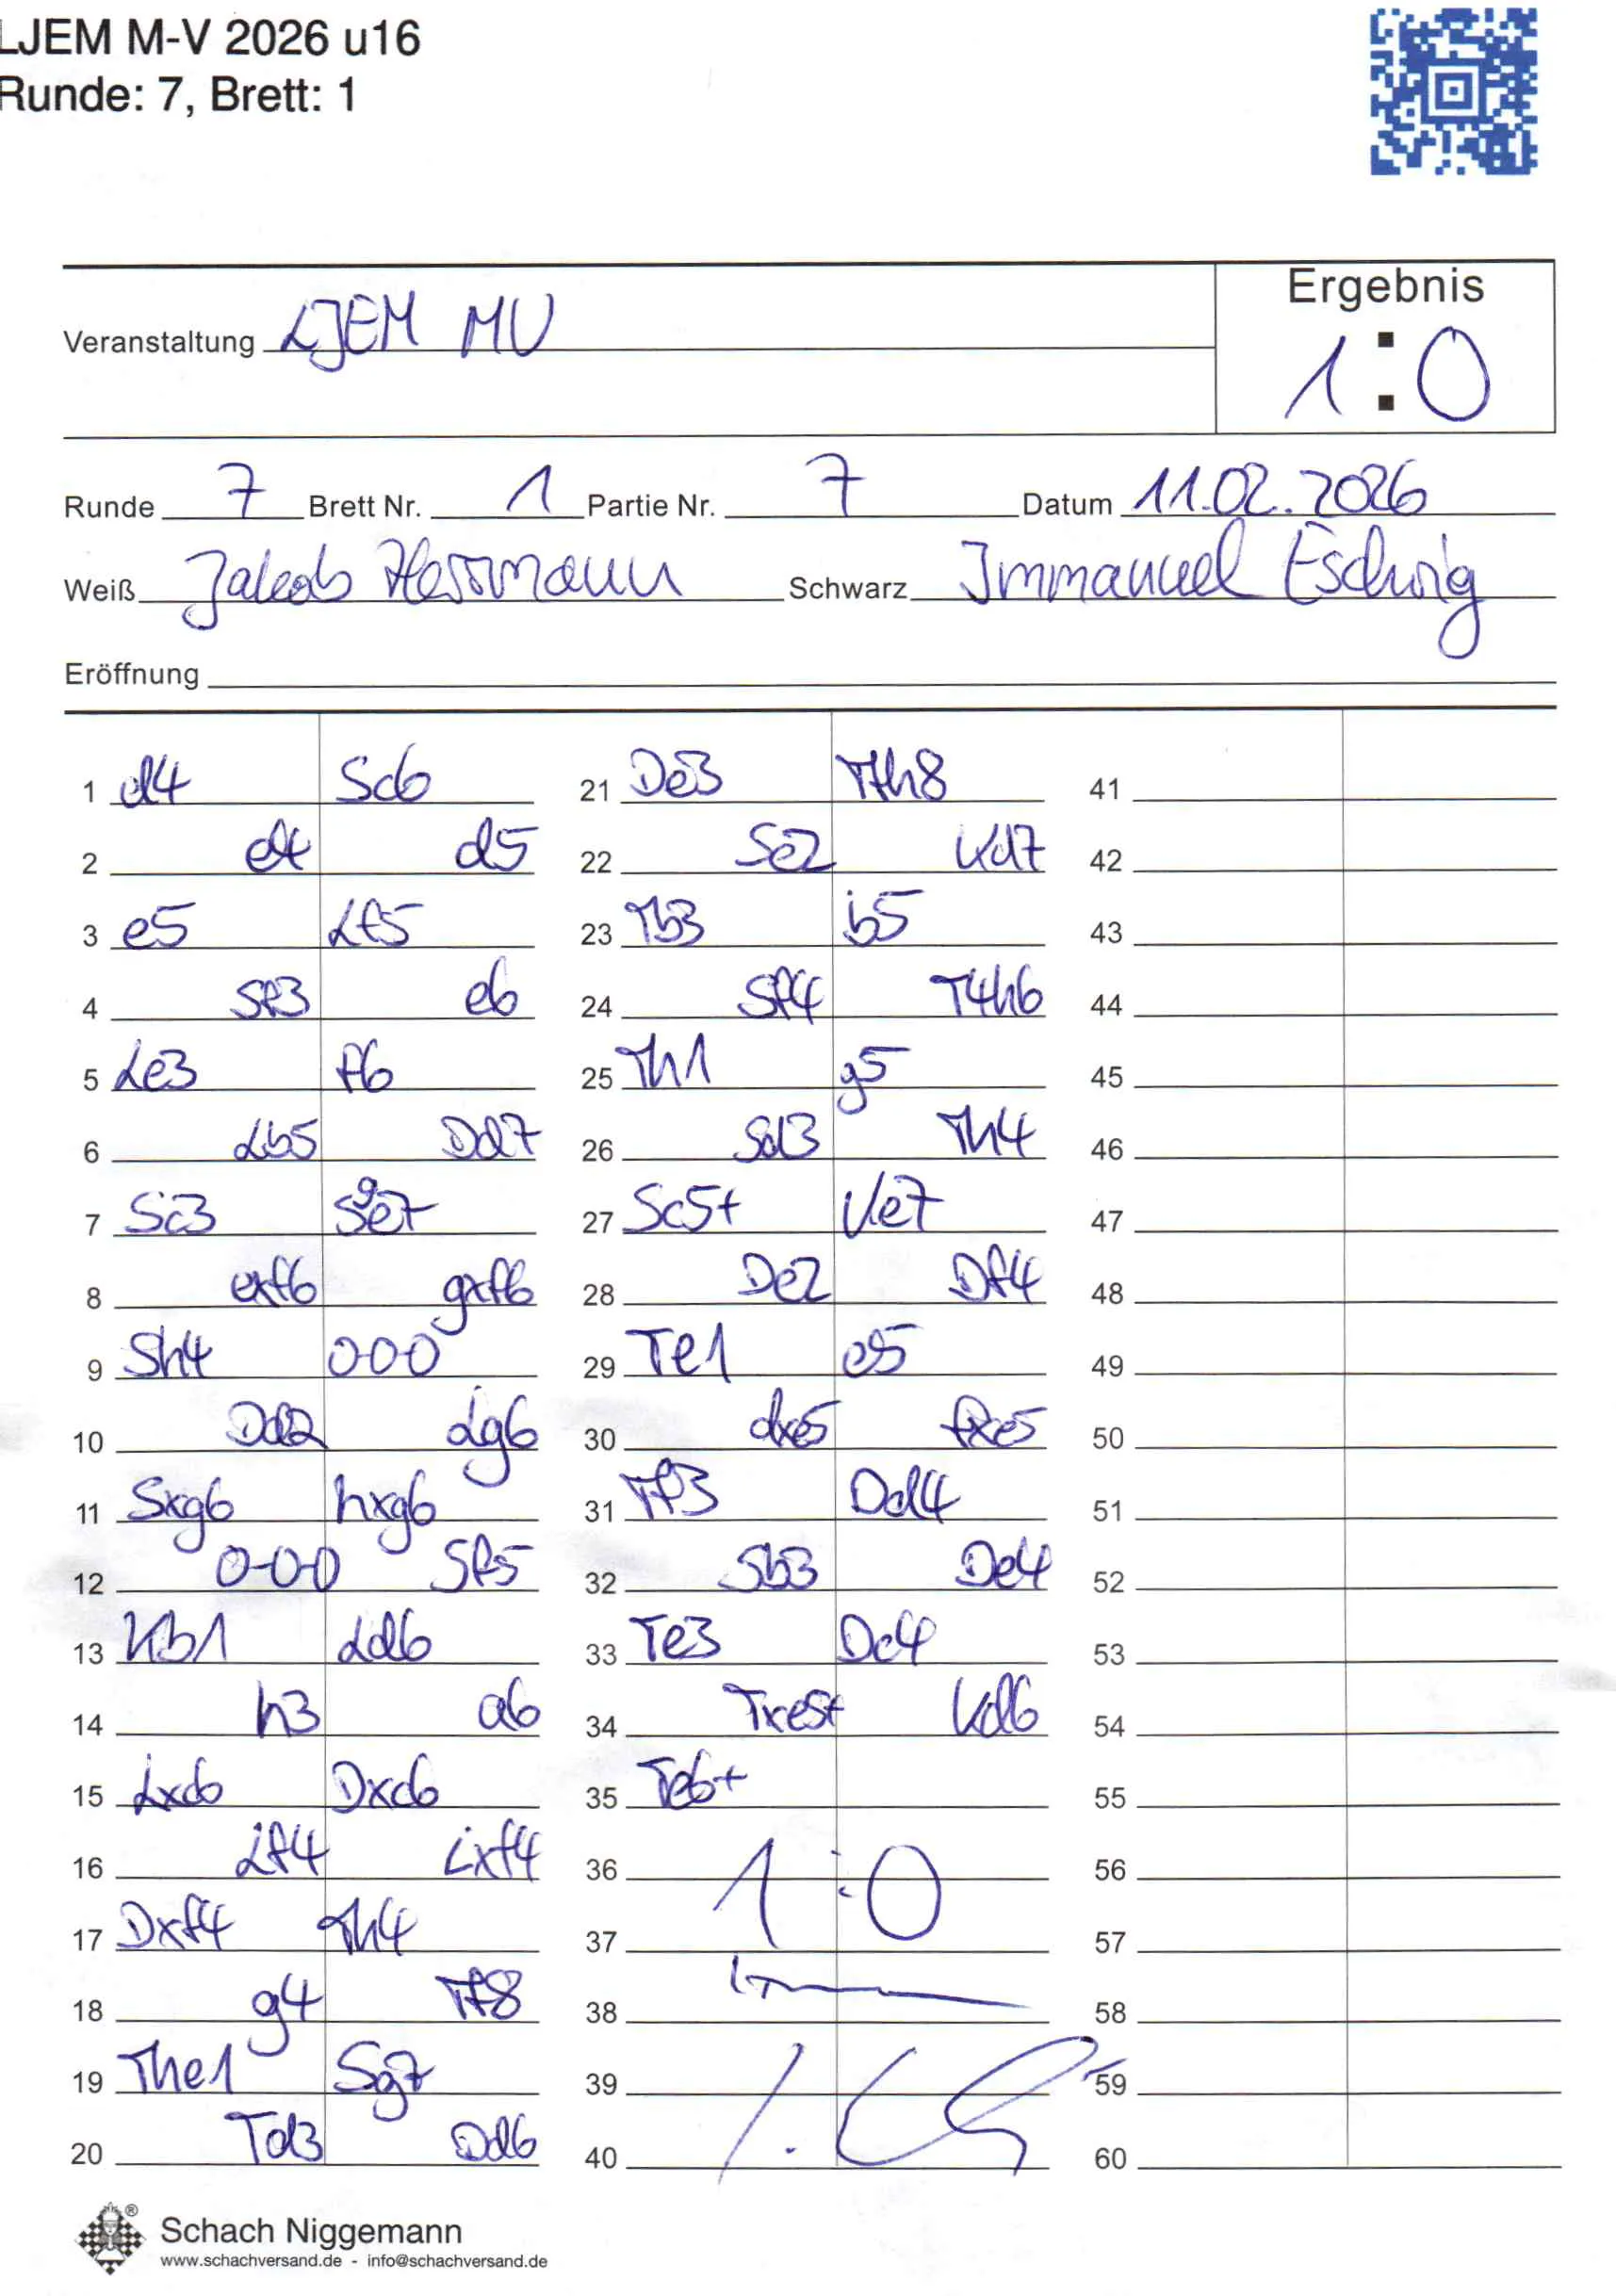 LJEM M-V 2026 u16
Runde: 7, Brett: 1
Ergebnis
1:0
Veranstaltung LJEM MV
Runde 7 Brett Nr. 1 Partie Nr. 7 Datum 11.02.2026
Weiß Jakob Herrmann Schwarz Immanuel Eschrig
Eröffnung
1 d4 Sc6 21 De3 Tfh8 41
2 e4 d5 22 Se2 Kd7 42
3 e5 Lf5 23 Tb3 b5 43
4 Sf3 e6 24 Sf4 T4h6 44
5 Le3 f6 25 Th1 g5 45
6 Lb5 Dd7 26 Sd3 Th4 46
7 Sc3 Sge7 27 Sc5+ Ke7 47
8 exf6 gxf6 28 De2 Df4 48
9 Sh4 0-0-0 29 Te1 e5 49
10 Dd2 Lg6 30 dxe5 fxe5 50
11 Sxg6 hxg6 31 Tf3 Dd4 51
12 0-0-0 Sf5 32 Sb3 De4 52
13 Kb1 Ld6 33 Te3 Dc4 53
14 h3 a6 34 Txe5+ Kd6 54
15 Lxc6 Dxc6 35 Te6+ 55
16 Lf4 Lxf4 36 56
17 Dxf4 Th4 37 1:0 57
18 g4 Tf8 38 58
19 The1 Sg7 39 59
20 Td3 Dd6 40 60
Schach Niggemann
www.schachversand.de - info@schachversand.de